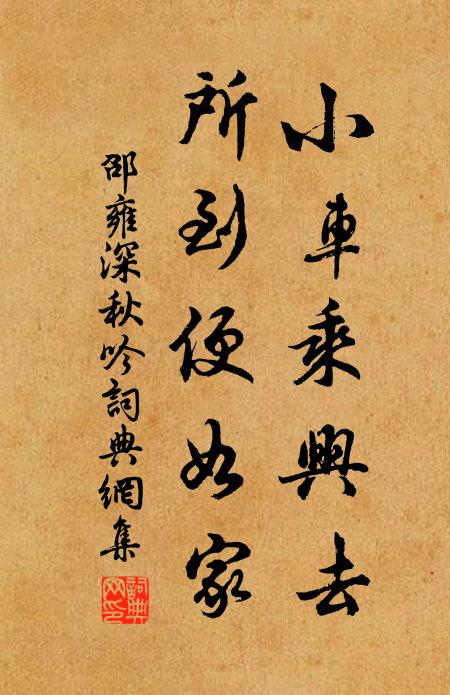 小車乘興去
所到便如家
邵雍深秋吟詞典網集
詞典網印